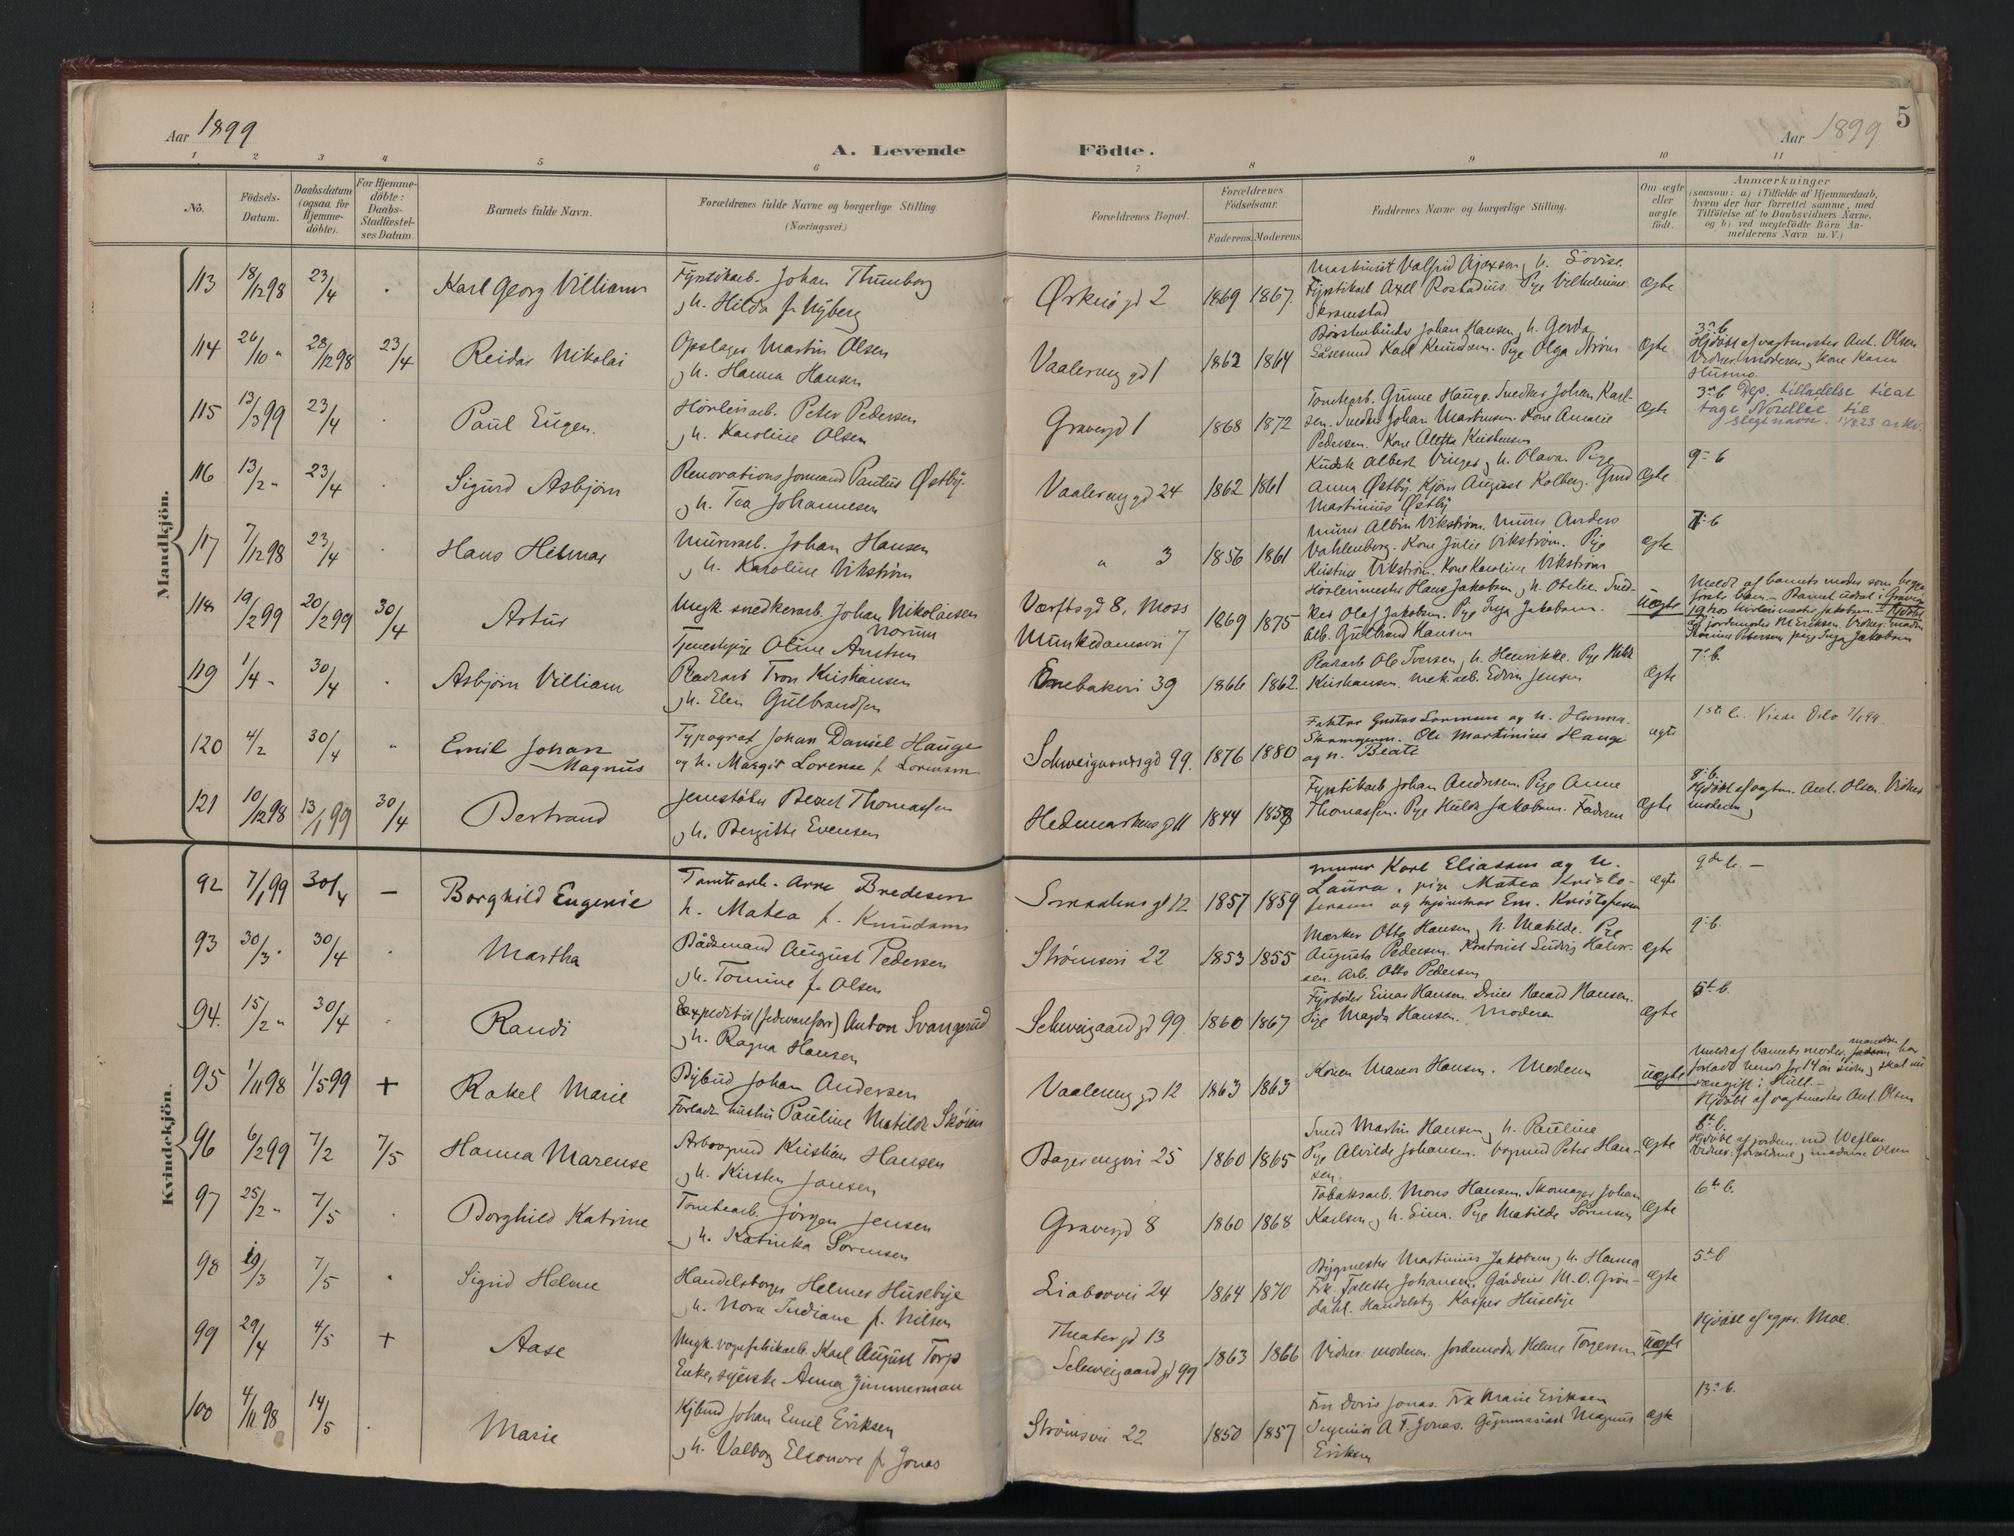 Aar 1899
A. Levende Födte.
Aar 1899
5
1 2 3 4 5 6 7 8 9 10 11
No.
Födsels-
Datum.
Daabsdatum
(ogsaa for
Hjemme-
döbte).
For Hjemme-
döbte:
Daabs-
Stadfæstel-
ses Datum.
Barnets fulde Navn.
Forældrenes fulde Navne og borgerlige Stilling.
(Næringsvei.)
Forældrenes Bopæl.
Forældrenes
Födselsaar.
Faderens. Moderens.
Faddernes Navne og borgerlige Stilling.
Om ægte
eller
uægte
födt.
Anmærkninger
(saasom: a) i Tilfælde af Hjemmedaab,
hvem der har forrettet samme, med
Tilföielse af to Daabsvidners Navne.
og b) ved uægtefödte Börn An-
melderens Navn m. V.)
Mandkjön.
113 18/12 98 23/4 Karl Georg Villiam
Fyrstikarb. Johan Thunborg
h. Hilda f. Nyberg
Ørknø gd 2 1869 1867.
Fyrstikarb Axel Rostadius. Pige Vilhelmine
Skramstad
Ægte
114 26/10 " 28/12 98 23/4 Reidar Nikolai
Opslager Martin Olsen
h. Hanna Hansen
Vaalereng gd 1 1862 1864
Børstenbinder Johan Hansen, h. Gerda
Karl Knudsen. Pige Olga Strøm
Ægte
3. b.
Hjdøbt af vagtmester Ant. Olsen
Vidner: moderen, kone Karen
115 13/3 99 23/4 Paul Eugen.
Peter Pedersen
h. Karoline Olsen
Gravergd 1 1868 1872
Tomtearb. Gunne Hauge. Snedker Johan Karl-
sen. Snedker Johan Martinsen. Kone Amalie
Pedersen. Kone Kristensen
Ægte
3. b Dep. tilladelse til at
tage Nordlie til
slegtnavn.
116 13/2 " 23/4 Sigurd Asbjørn
Renovationsformand Paulus Østby.
h. Tea Johannesen
Vaalereng gd 24 1862 1861
Kudsk Albert Vinger, h. Olava. Pige
Anna Østby. Kjører August Kolberg.
Martinius Østby
Ægte
9. b
117 7/12 98 23/4 Hans Helmar
Murerarb. Johan Hansen
h. Karoline Vikstrøm
" 3 1856 1861
Murer Albin Vikstrøm. Murer Anders
Vahlenberg. Kone Julie Vikstrøm. Pige
Kristine Vikstrøm. Kone Karoline Vikstrøm
Ægte
7. b
118 19/2 99 20/2 99 30/4 Artur
Ungk. snedkerarb. Johan Nikolaisen
Norum
Tjenestepige Oline Arntsen
Værftsgd 8, Moss
Munkedamsvei 7
1869 1875
Hans Jakobsen, h. Otilie. Sned-
ker Olaf Jakobsen. Pige Inga Jakobsen.
Arb. Gulbrand Hansen
Uægte
119 1/4 " 30/4 Asbjørn Villiam
Pladsarb Tron Kristiansen
h. Elen Gulbrandsen
Enebakvei 39 1866 1862.
Pladsarb Ole Iversen, h. Henrikke. Pige
Kristiansen. Mek. arb. Edvin Jensen
Ægte
7. b.
120 4/2 30/4 " Emil Johan
Magnus
Typograf Johan Daniel Hauge
og h. Margit Lorense f. Lorensen
Schweigaardsgd 99. 1876 1880
Faktor Gustav Lorensen og h. Hanna.
Ole Martinius Hauge
og h. Beate
ægte
1ste b. Viede Oslo
121 10/12 98 13/1 99 30/4 Bertrand
Jernstøber Berent Thomassen
h. Bergitte Evensen
Hedemarkens gd 11 1844 1858
Fyrstikarb Johan Andersen. Pige Anne
Thomassen. Pige Hilda Jakobsen. Faderen
Ægte
8. b.
Hjdøbt af vagtm. Ant. Olsen. Vidner
moderen
Kvindekjön.
92 7/1 99 30/4 — Borghild Eugenie
Tomtearb. Arne Bredesen
h. Matea f. Knudsen
Smaalens gd 12 1857 1859
Murer Karl Eliassen og h.
Laura, pige Matea Kristo-
fersen og Em. Kristofersen
ægte
9de b. —
93 30/3 . 30/4 Martha
Baadsmand August Pedersen
h. Tomine f. Olsen
Strømsvei 22 1853 1855
Mærker Otto Hansen, h. Matilde. Pige
Augusta Pedersen. Kontorist Ludvig Halvor-
sen. Arb. Otto Pedersen
Ægte
9. b.
94. 15/2 " 30/4 Randi
Expeditør (fedevareforr) Anton Svangerud
h. Ragna Hansen
Schweigaards gd 99. 1860 1867
Fyrbøder Einar Hansen. Harald Hansen.
Pige Magda Hansen. Moderen
Ægte
5t b.
95 1/11 98 1/5 99 + Rakel Marie
Bybud Johan Andersen
Forladt hustru Pauline Matilde Skøien
Vaalereng gd 12 1863 1863
Konen Maren Hansen. Moderen
Uægte
Meldt af barnets moder, manden har
forladt hende for 14 år siden, skal nu
være gift i Hull. —
Hjdøbt af vagtmester Ant. Olsen
96 6/2 99 7/2 7/5 Hanna Marense
Kristian Hansen
h. Kirsten Jansen
Bagerengvei 25 1860 1865
Sned Martin Hansen, h. Pauline
Pige Alvilde Johansen. Peter Han-
sen.
Ægte
8. b.
Hjdøbt af jordem. Weflen
Vidner: forældrene, madame Olsen
97 25/2 " 7/5 Borghild Katrine
Tomtearb. Jørgen Jensen
h. Katinka Sørensen
Gravergd 8 1860 1868
Tobaksarb. Mons Hansen. Skomager Johan
Karlsen, h. Lina. Pige Matilde Sørensen
Ægte
6t b.
98 19/3 7/5 Sigrid Helene
Handelsborger Helmer Husebye
h. Nora Indiane f. Nilsen
Liabrovei 24 1864 1870
Bygmester Martinius Jakobsen, h. Hanna
Frk. Johansen. Gårdeier M. O. Grøn-
dahl. Handelsby. Kasper Husebye
Ægte
5t b
99 29/4 4/5 + Aase
Ungk. vognfabrikarb. Karl August Torp
Enke, syerske Anna Zimmerman
Theatergd 13
Schweigaard gd 99
1863 1866
Vidner: moderen. Jordemoder Helene Torgersen
Uægte
Hjdøbt af Moe.
100 4/11 98 14/5 Marie
Johan Emil Eriksen
h. Valborg Eleonore f. Jonas
Strømsvei 22 1850 1857
Fru Doris Jonas. Frk Marie Eriksen
Ingeniør A. F. Jonas. Gymnasiast Magnus
Eriksen
Ægte
13. b.